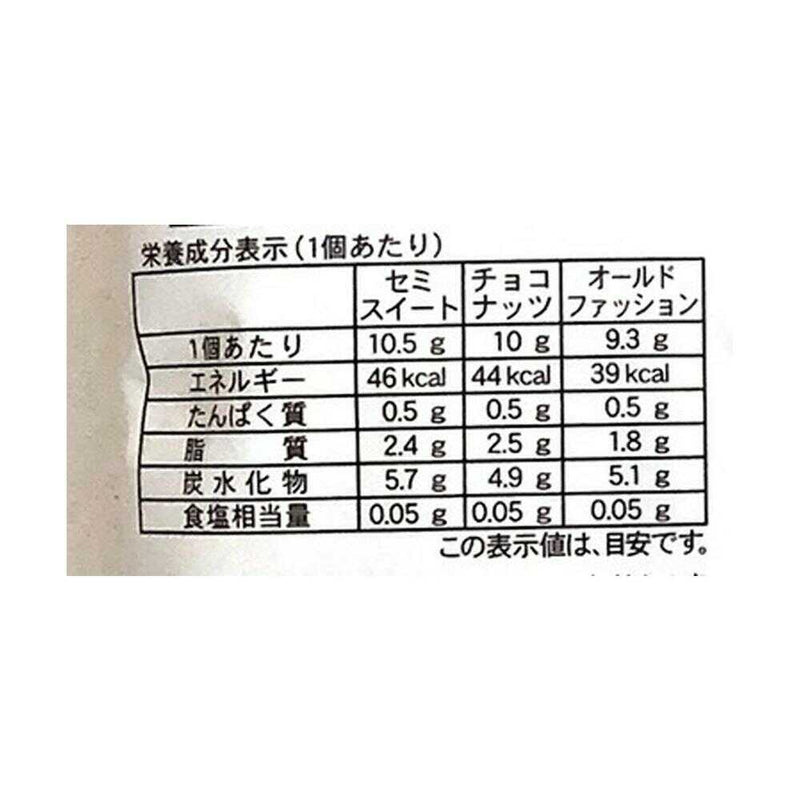 栄養成分表示(1個あたり)
セミ
スイート
チョコ
ナッツ
オールド
ファッション
1個あたり 10.5 g 10 g 9.3 g
エネルギー 46kcal 44kcal 39kcal
たんぱく質 0.5 g 0.5 g 0.5 g
脂 質 2.4 g 2.5 g 1.8 g
炭水化物 5.7 g 4.9 g 5.1 g
食塩相当量 0.05 g 0.05 g 0.05 g
この表示値は、目安です。